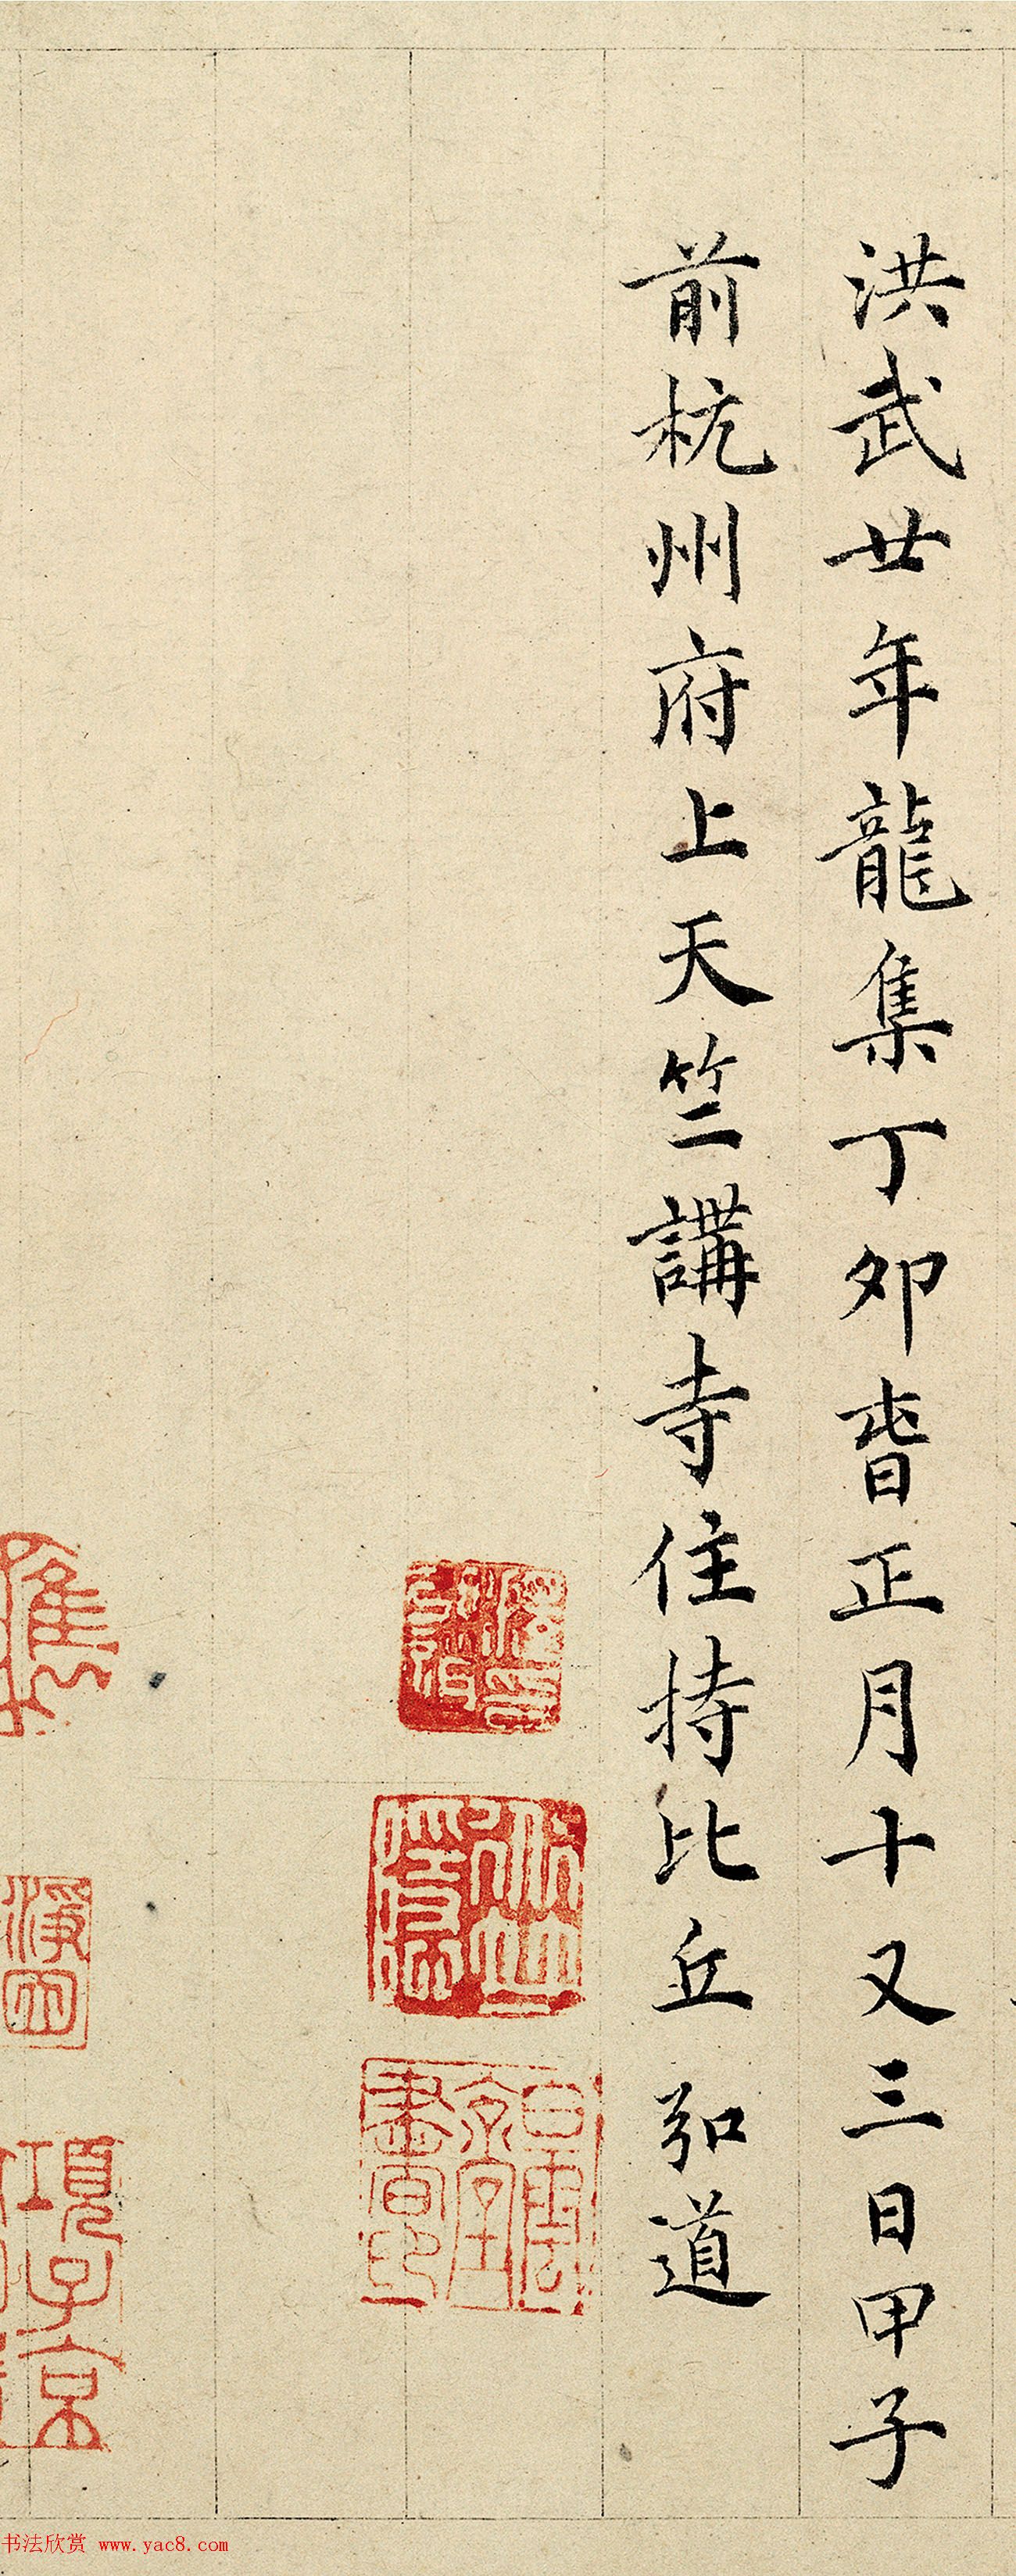 洪武廿年龍集丁卯旹正月十又三日甲子
前杭州府上天竺講寺住持比丘弘道
項子京
書法欣赏 www.yac8.com